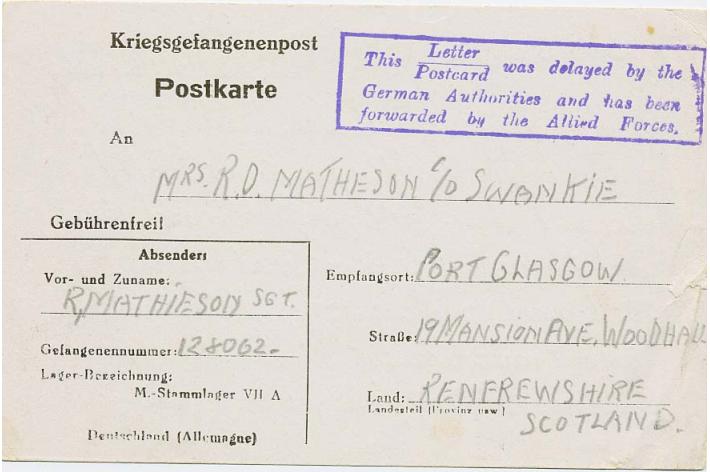 Kriegsgefangenenpost
Postkarte
This Letter / Postcard was delayed by the
German Authorities and has been
forwarded by the Allied Forces.
An
MRS. R.D. MATHESON C/O SWANKIE
Gebührenfrei!
Absender:
Vor- und Zuname:
R, MATHIESON SGT.
Gefangenennummer: 128062-
Lager-Bezeichnung:
M.-Stammlager VII A
Deutschland (Allemagne)
Empfangsort: PORT GLASGOW.
Straße: 19 MANSION AVE, WOODHALL
Land: RENFREWSHIRE
Landesteil (Provinz usw.)
SCOTLAND.